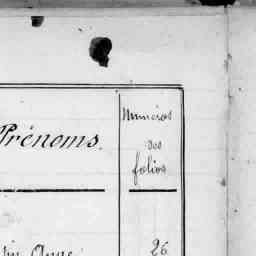 Prénoms.
Numéros
des
folios
26